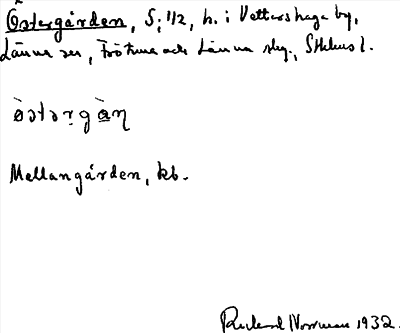 Östergården, S; 1/2, h. i Vettershaga by,
Länna sn, Frötuna och Länna slg., Sthlms l.
ö̀stərgà̱ṇ
Mellangården, kb.
Rickard Norrman 1932.